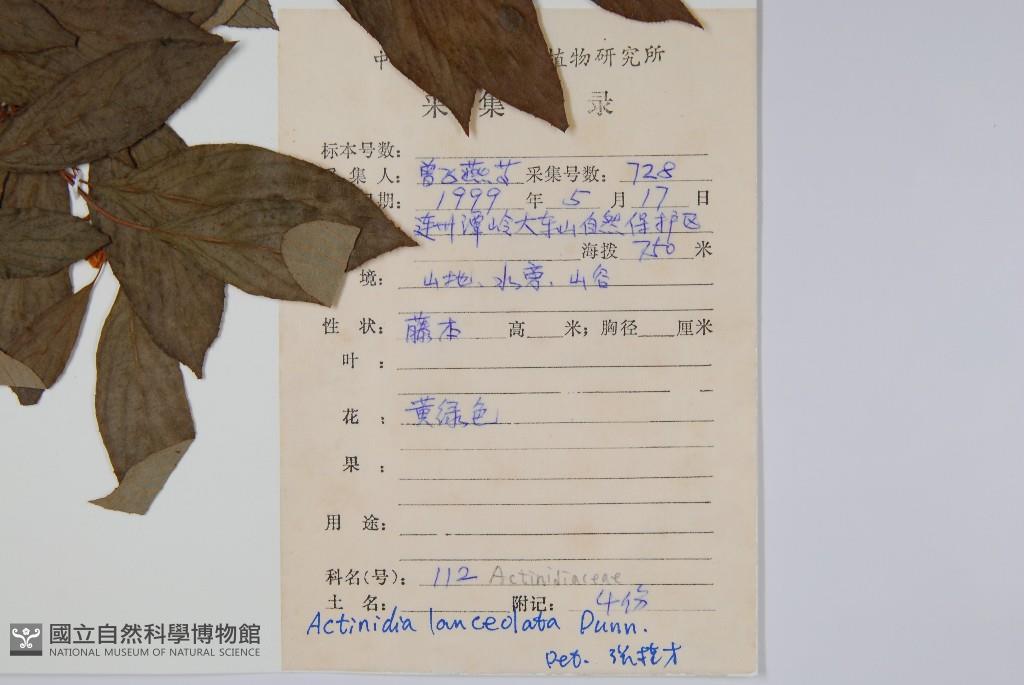 中 植物研究所
采集 录
标本号数：
集人： 曾飞燕等 采集号数： 728
日期： 1999 年 5 月 17 日
连州潭岭大东山自然保护区
海拨 750 米
境： 山地、水旁、山谷
性 状： 藤本 高 米；胸径 厘米
叶 ：
花 ： 黄绿色
果 ：
用 途：
科名(号)： 112 Actinidiaceae
土 名： 附记： 4份
Actinidia lanceolata Dunn.
Det. 张 才
國立自然科學博物館
NATIONAL MUSEUM OF NATURAL SCIENCE